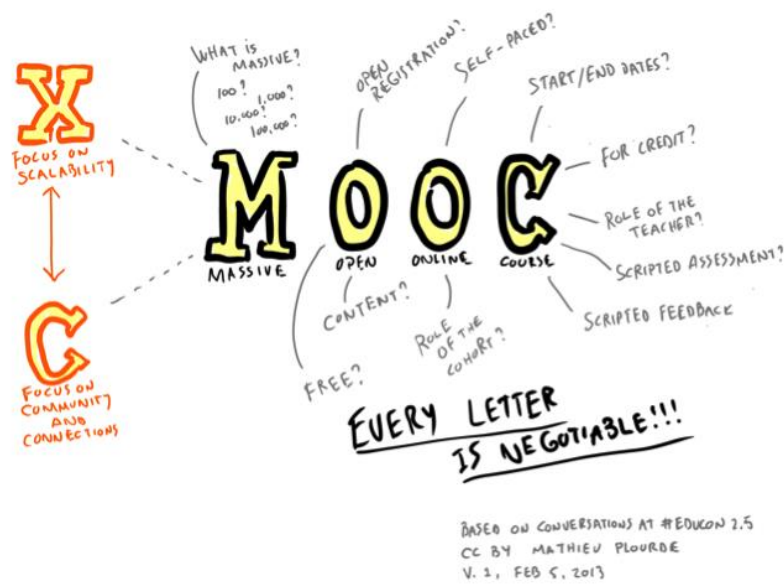 X
FOCUS ON
SCALABILITY
C
FOCUS ON
COMMUNITY
AND
CONNECTIONS
WHAT IS
MASSIVE?
100?
1,000?
10,000?
100,000?
OPEN
REGISTRATION?
SELF-PACED?
START/END DATES?
FOR CREDIT?
ROLE OF THE
TEACHER?
SCRIPTED ASSESSMENT?
SCRIPTED FEEDBACK
MOOC
MASSIVE OPEN ONLINE COURSE
CONTENT?
FREE?
ROLE
OF THE
COHORT?
EVERY LETTER
IS NEGOTIABLE!!!
BASED ON CONVERSATIONS AT #EDUCON 2.5
CC BY MATHIEU PLOURDE
V. 1, FEB 5, 2013